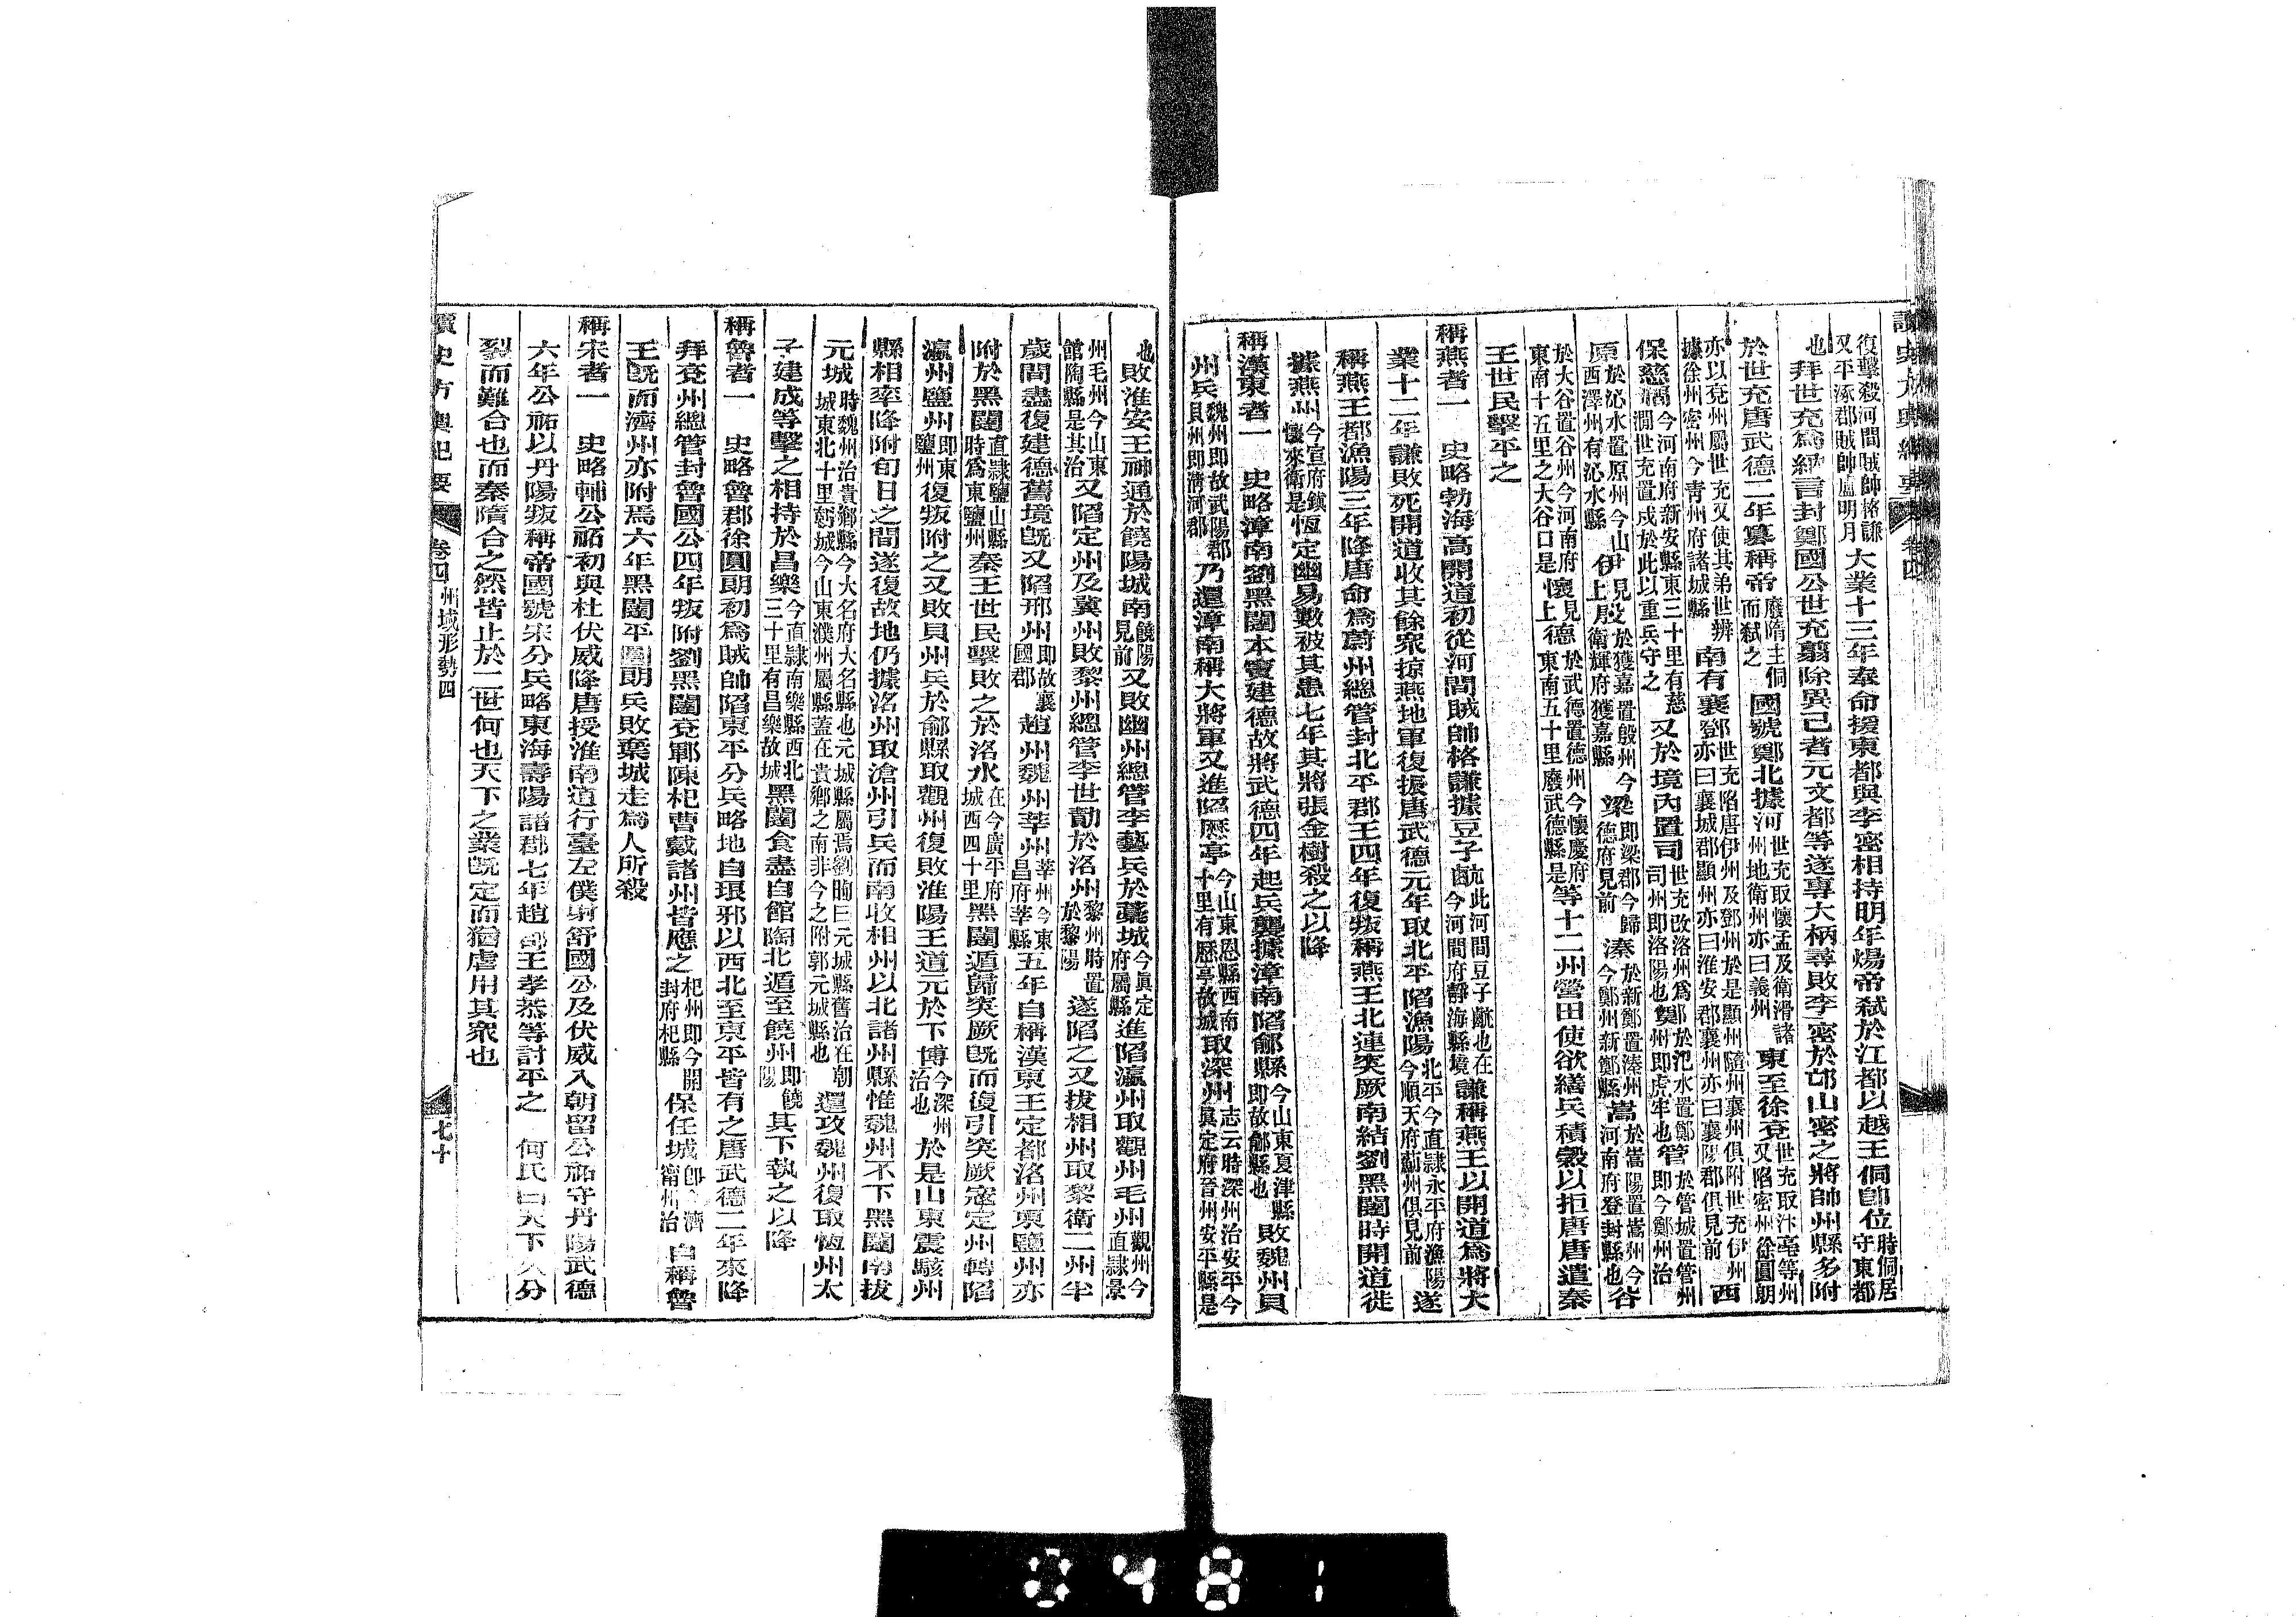 讀史方輿紀要 卷四
復擊殺河間賊帥格謙又平涿郡賊帥盧明月大業十三年奉命援東都與李密相持明年煬帝弒於江都以越王侗卽位時侗居守東都
也拜世充爲納言封鄭國公世充翦除異己者元文都等遂專大柄尋敗李密於邙山密之將帥州縣多附
於世充唐武德二年簒稱帝廢隋主侗而弒之國號鄭北據河世充取懷孟及衛滑諸州地衛州亦曰義州東至徐兗世充取汴亳等州又陷密州徐圓朗
亦以兗州屬世充又使其弟世辨據徐州密州今青州府諸城縣南有襄鄧世充陷唐伊州及鄧州於是顯州隨州襄州俱附世充伊州亦曰襄城郡顯州亦曰淮安郡襄州亦曰襄陽郡俱見前西
保慈澗今河南府新安縣東三十里有慈澗世充置戍於此以重兵守之又於境內置司世充改洛州爲司州卽洛陽也鄭於氾水置鄭州卽虎牢也管於管城置管州卽今鄭州治
原於沁水置原州今山西澤州有沁水縣伊見上殷於獲嘉置殷州今衛輝府獲嘉縣梁卽梁郡今歸德府見前溱於新鄭置溱州今鄭州新鄭縣嵩於嵩陽置嵩州今河南府登封縣也谷
於大谷置谷州今河南府東南十五里之大谷口是懷見上德於武德置德州今懷慶府東南五十里廢武德縣是等十二州營田使欲繕兵積穀以拒唐唐遣秦
王世民擊平之
稱燕者一 史略勃海高開道初從河間賊帥格謙據豆子䴚此河間豆子䴚也在今河間府靜海縣境謙稱燕王以開道爲將大
業十二年謙敗死開道收其餘衆掠燕地軍復振唐武德元年取北平陷漁陽北平今直隸永平府漁陽今順天府薊州俱見前遂
稱燕王都漁陽三年降唐命爲蔚州總管封北平郡王四年復叛稱燕王北連突厥南結劉黑闥時開道徙
據燕州今宣府鎮懷來衛是恆定幽易數被其患七年其將張金樹殺之以降
稱漢東者一 史略漳南劉黑闥本竇建德故將武德四年起兵襲據漳南陷鄃縣今山東夏津縣卽故鄃縣也敗魏州貝
州兵魏州卽故武陽郡貝州卽淸河郡乃還漳南稱大將軍又進陷歷亭今山東恩縣西南十里有歷亭故城取深州志云時深州治安平今眞定府晉州安平縣是
也敗淮安王神通於饒陽城南饒陽見前又敗幽州總管李藝兵於藁城今眞定府屬縣進陷瀛州取觀州毛州觀州今直隸景
州毛州今山東館陶縣是其治又陷定州及冀州敗黎州總管李世勣於洺州黎州時置於黎陽遂陷之又拔相州取黎衛二州半
歲間盡復建德舊境旣又陷邢州卽故襄國郡趙州魏州莘州莘州今東昌府莘縣五年自稱漢東王定都洺州東鹽州亦
附於黑闥直隸鹽山縣時爲東鹽州秦王世民擊敗之於洺水在今廣平府城西四十里黑闥遁歸突厥旣而復引突厥寇定州轉陷
瀛州鹽州卽東鹽州復叛附之又敗貝州兵於鄃縣取觀州復敗淮陽王道元於下博今深州治也於是山東震駭州
縣相率降附旬日之間遂復故地仍據洺州取滄州引兵而南收相州以北諸州縣惟魏州不下黑闥南拔
元城時魏州治貴鄉縣今大名府大名縣也元城縣屬焉劉昫曰元城縣舊治在朝城東北十里故城今山東濮州屬縣蓋在貴鄉之南非今之附郭元城縣也還攻魏州復取恆州太
子建成等擊之相持於昌樂今直隸南樂縣西北三十里有昌樂故城黑闥食盡自館陶北遁至饒州卽饒陽其下執之以降
稱魯者一 史略魯郡徐圓朗初爲賊帥陷東平分兵略地自琅邪以西北至東平皆有之唐武德二年來降
拜兗州總管封魯國公四年叛附劉黑闥兗鄆陳杞曹戴諸州皆應之杞州卽今開封府杞縣保任城卽今濟甯州治自稱魯
王旣而濟州亦附焉六年黑闥平圓朗兵敗棄城走爲人所殺
稱宋者一 史略輔公祏初與杜伏威降唐授淮南道行臺左僕射舒國公及伏威入朝留公祏守丹陽武德
六年公祏以丹陽叛稱帝國號宋分兵略東海壽陽諸郡七年趙郡王孝恭等討平之 何氏曰天下八分
裂而難合也而秦隋合之然皆止於二世何也天下之業旣定而猶虐用其衆也
讀史方輿紀要 卷四 州域形勢四 七十
3481